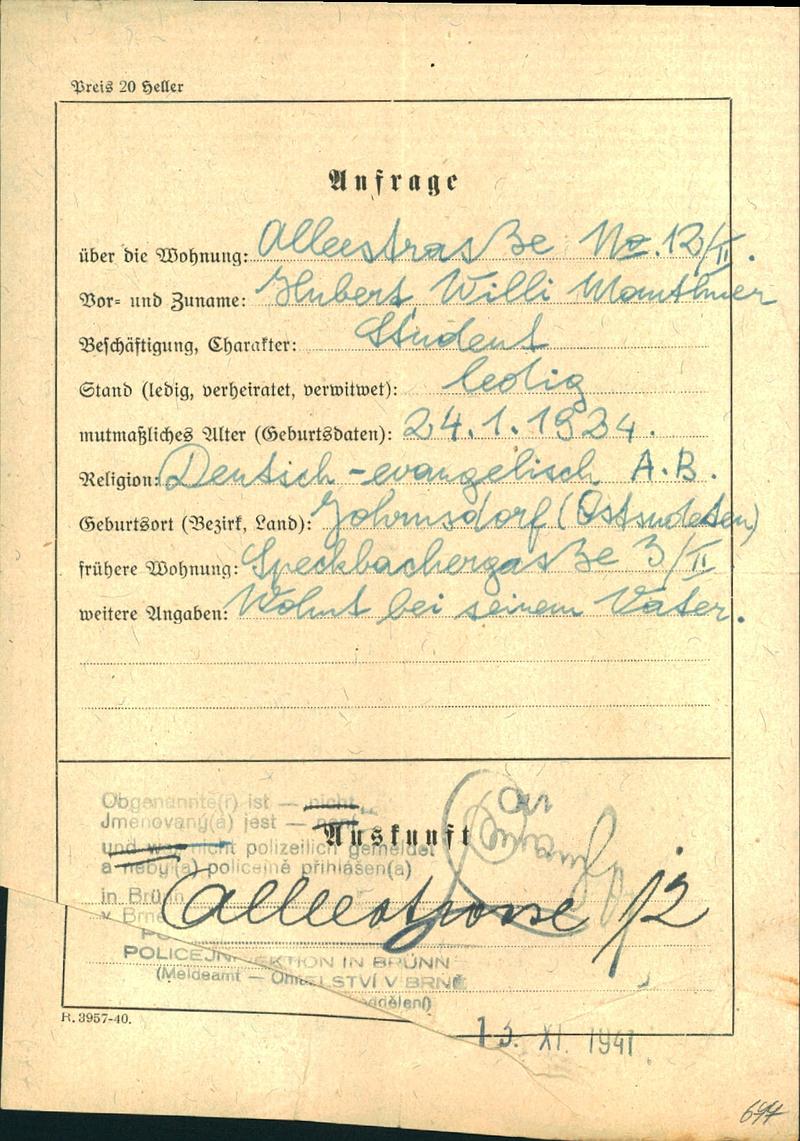 Preis 20 Heller
Anfrage
über die Wohnung: Alleestraße No. 12/II.
Vor- und Zuname: Hubert Willi Mauthner
Beschäftigung, Charakter: Student
Stand (ledig, verheiratet, verwitwet): ledig
mutmaßliches Alter (Geburtsdaten): 24.1.1924.
Religion: Deutsch-evangelisch A.B.
Geburtsort (Bezirk, Land): Johrnsdorf (Ostsudeten)
frühere Wohnung: Speckbachergasse 3/II
weitere Angaben: Wohnt bei seinem Vater.
Obgenannte(r) ist — nicht
Jmenovaný(á) jest —
Auskunft
und war nicht polizeilich gemeldet
a neby(a) policejně přihlášen(a)
in Brünn
v Brně
Alleestrasse 12
POLICEJN EKTION IN BRÜNN
(Meldeamt — ELSTVÍ V BRNĚ
oddělení)
R. 3957-40.
13. XI. 1941